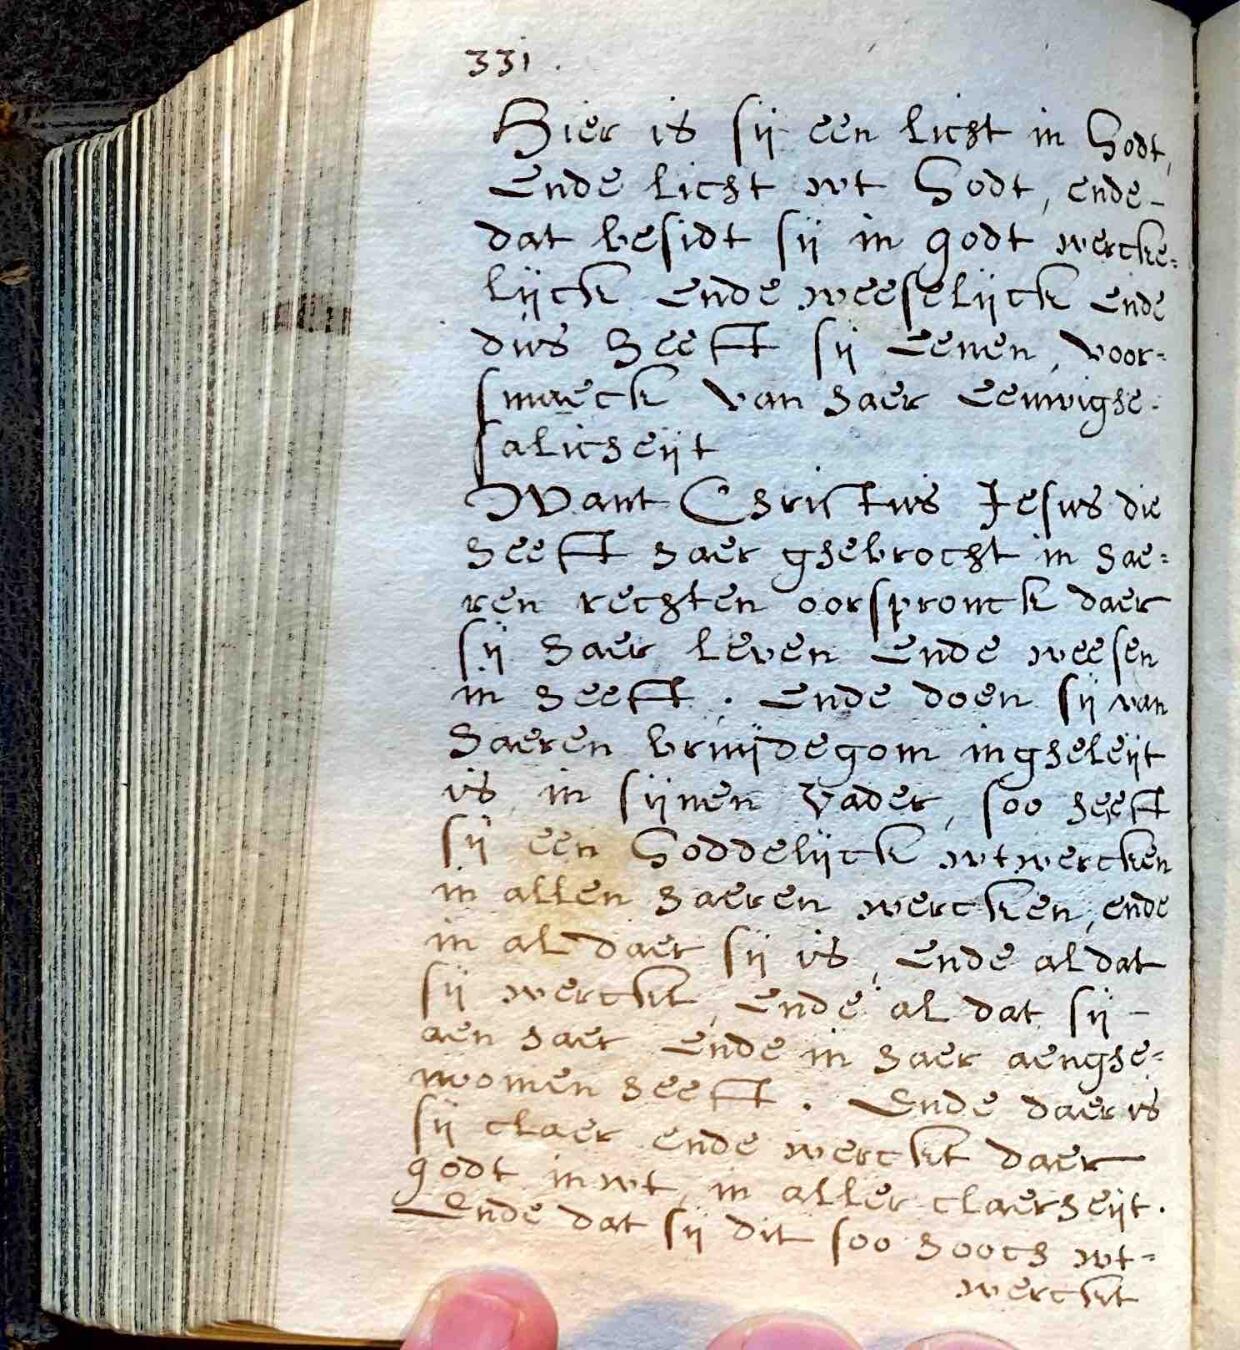 331.
Hier is sij een licht in Godt,
Ende licht wt Godt, ende-
dat besidt sij in godt wercke=
lijck ende weeselijck ende
dus heeft sij Eenen voor-
smaeck van haer Eeuwighe-
salicheijt
Want Christus Jesus die
heeft haer ghebrocht in hae=
ren rechten oorspronck daer
sij haer leven Ende weesen
in heeft. Ende doen sij van
haeren bruijdegom ingheleijt
is in sijnen Vader, soo heeft
sij een Goddelijck wtwercken
in allen haeren wercken, ende
in al daer sij is, Ende al dat
sij werckt, Ende al dat sij -
aen haer Ende in haer aenghe=
nomen heeft. Ende daer is
sij claer ende werckt daer
godt in wt, in aller claerheijt.
Ende dat sij dit soo hooch wt=
werckt